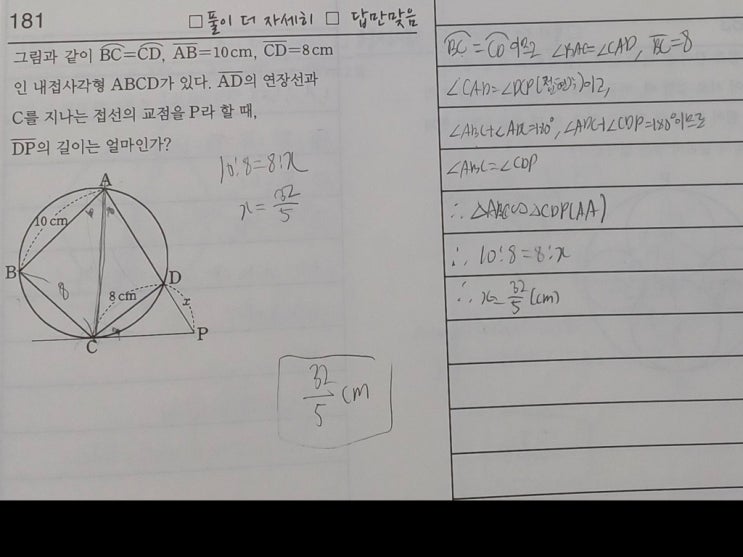 181 □풀이 더 자세히 □ 답만맞음
그림과 같이 BC=CD, AB=10cm, CD=8cm
인 내접사각형 ABCD가 있다. AD의 연장선과
C를 지나는 접선의 교점을 P라 할 때,
DP의 길이는 얼마인가?
10:8=8:x
x=32/5
A
10 cm
B
8
8 cm
D
x
C
P
32/5 cm
BC=CD이므로 ∠BAC=∠CAD, BC=8
∠CAD=∠DCP(접현각)이고,
∠ABC+∠ADC=180°, ∠ADC+∠CDP=180°이므로
∠ABC=∠CDP
∴ △ABC∽△CDP(AA)
∴ 10:8=8:x
∴ x=32/5 (cm)